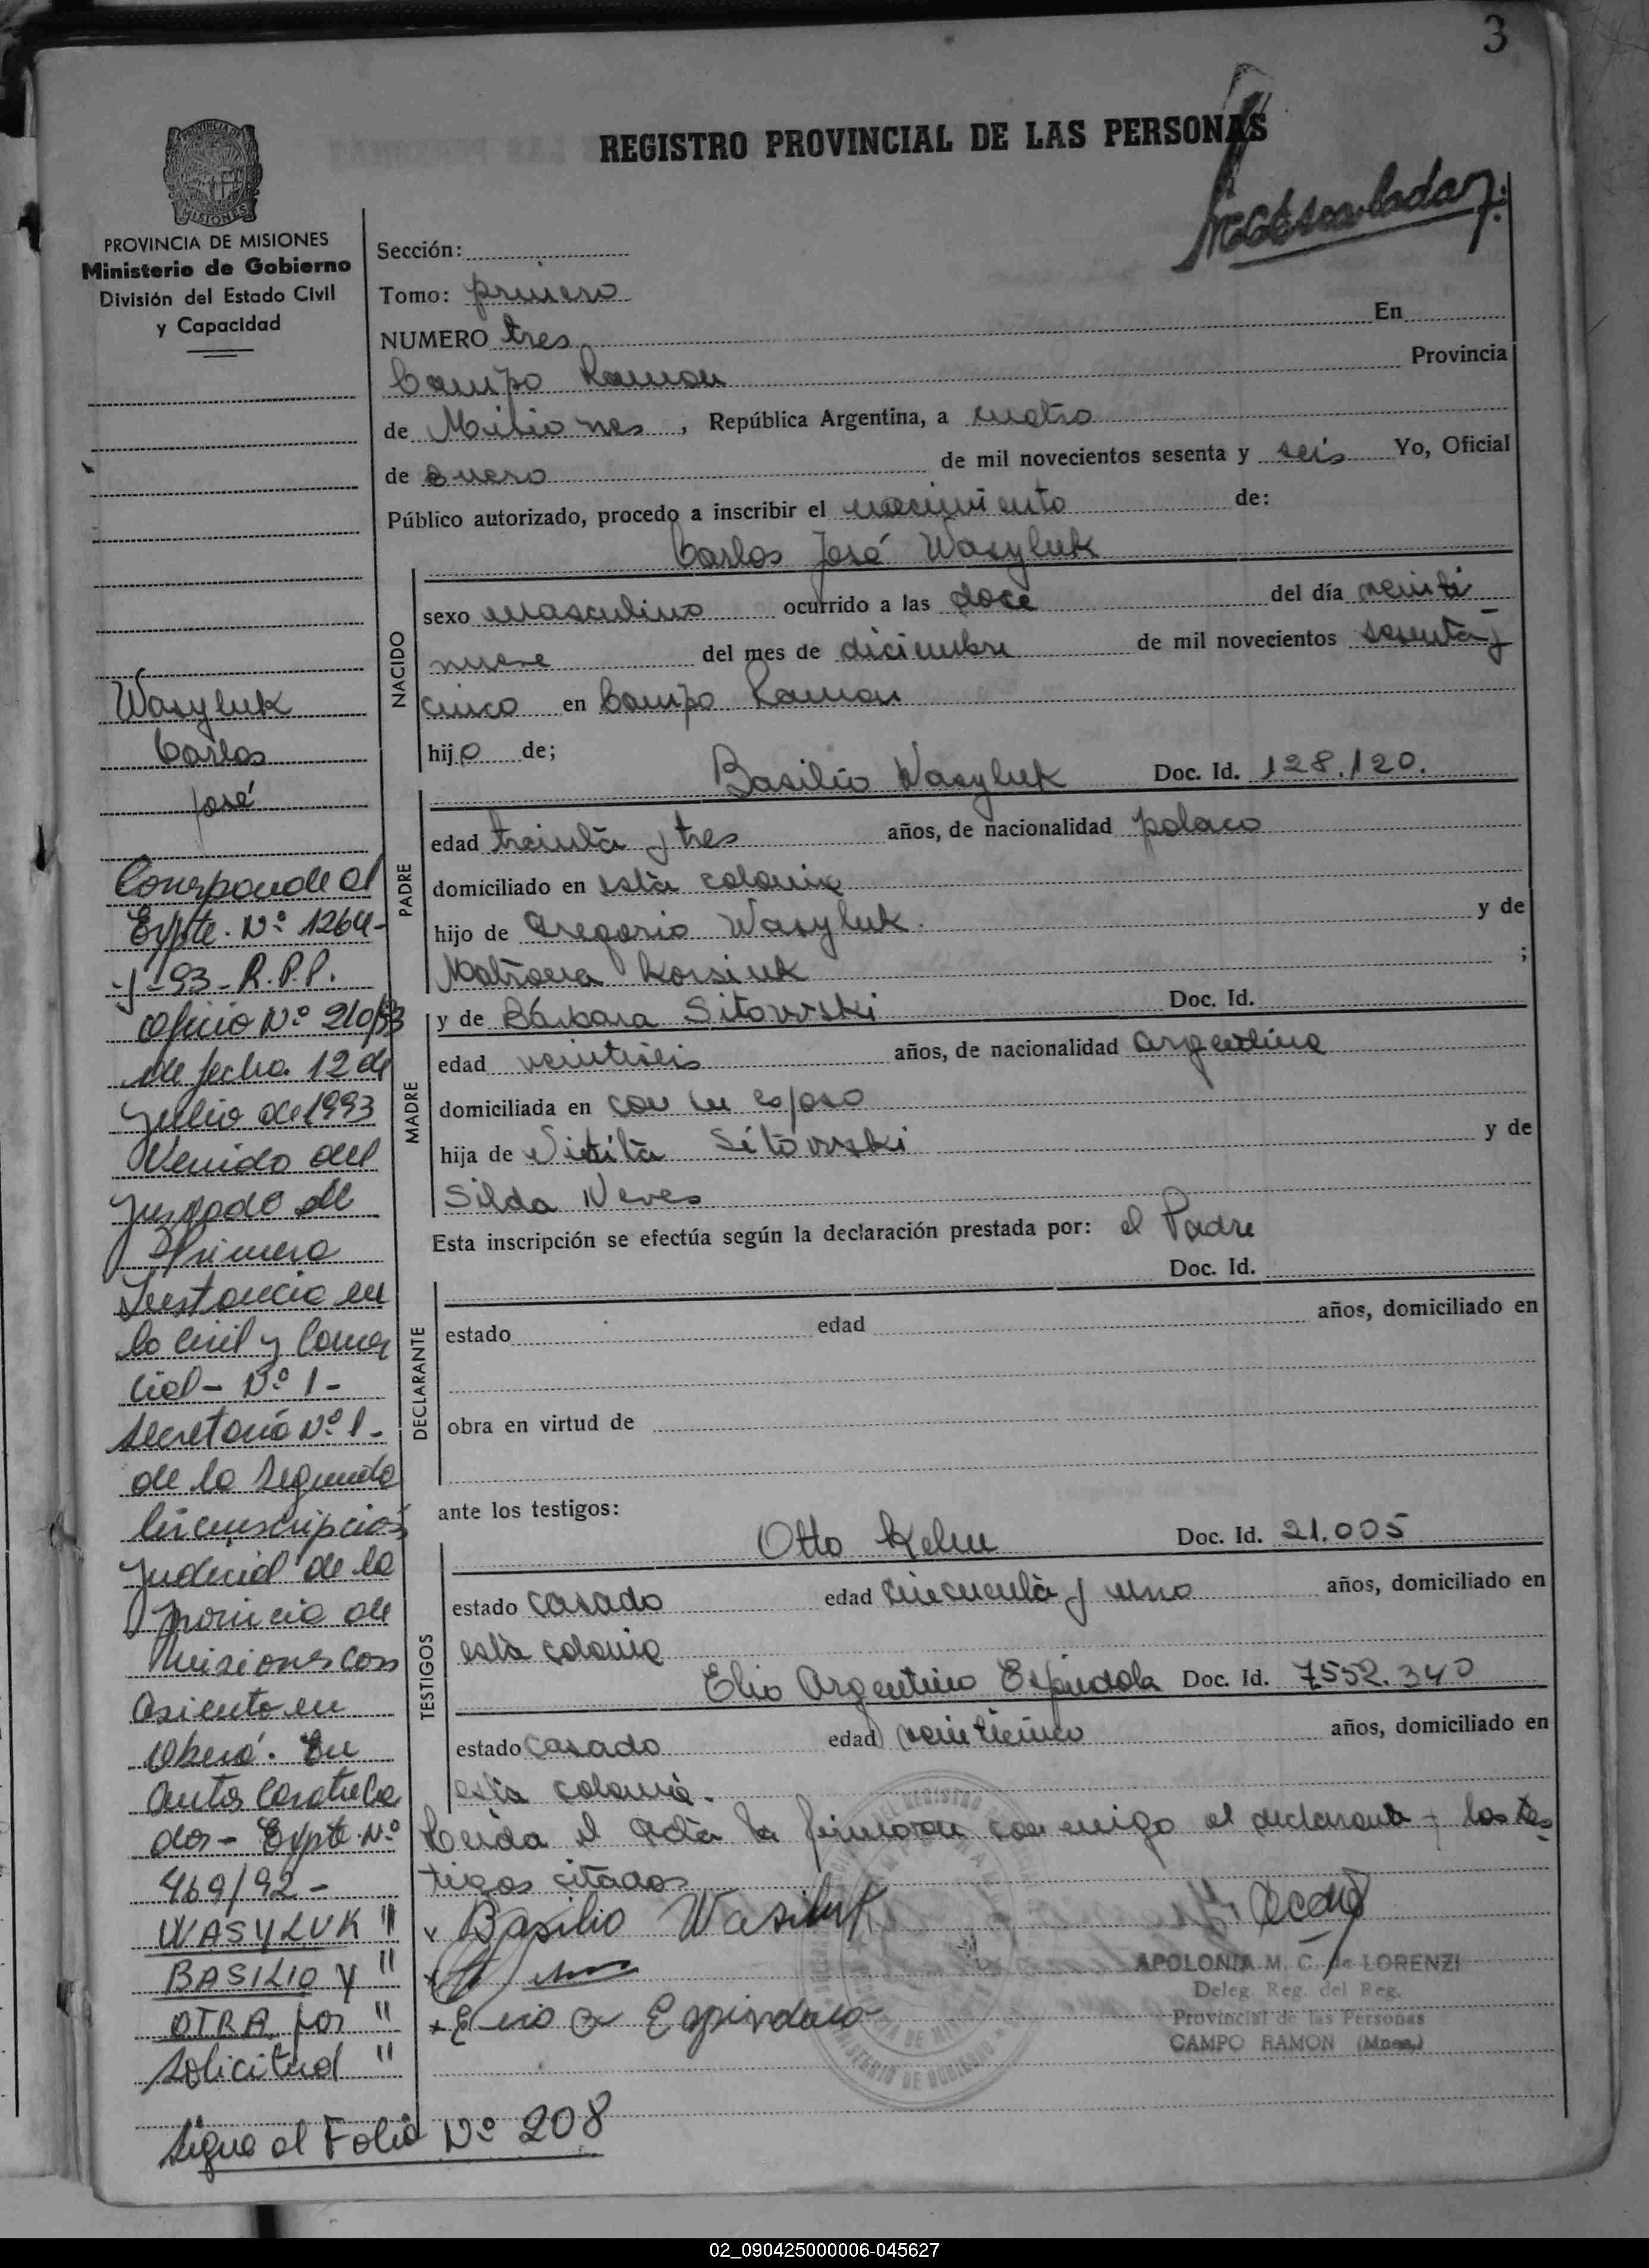 3
REGISTRO PROVINCIAL DE LAS PERSONAS
PROVINCIA DE MISIONES
Ministerio de Gobierno
División del Estado Civil
y Capacidad
Sección:
Tomo: primero
NUMERO tres En
Campo Ramon Provincia
de Misiones, República Argentina, a cuatro
de enero de mil novecientos sesenta y seis Yo, Oficial
Público autorizado, procedo a inscribir el nacimiento de:
Carlos José Wasyluk
NACIDO
sexo masculino ocurrido a las doce del día veinti
nueve del mes de diciembre de mil novecientos sesenta y
cinco en Campo Ramon
hijo de;
Basilio Wasyluk Doc. Id. 128.120.
PADRE
edad treinta y tres años, de nacionalidad polaco
domiciliado en esta colonia
hijo de Gregorio Wasyluk. y de
Matrona Korsiuk ;
y de Bárbara Sitovski Doc. Id.
MADRE
edad veintiseis años, de nacionalidad argentina
domiciliada en con su esposo
hija de Sitovski y de
Silda Neves
Esta inscripción se efectúa según la declaración prestada por: el Padre
Doc. Id.
DECLARANTE
estado edad años, domiciliado en
obra en virtud de
ante los testigos:
Otto Doc. Id. 21.005
TESTIGOS
estado casado edad cincuenta y uno años, domiciliado en
esta colonia
Elio Argentino Espindola Doc. Id. 7552.340
estado casado edad veinticinco años, domiciliado en
esta colonia.
Leida el acta la firmaron conmigo el declarante y los tes
tigos citados
Basilio Wasiluk
Espindola
APOLONIA M. C. de LORENZI
Deleg. Reg. del Reg.
Provincial de las Personas
CAMPO RAMON (Mnes.)
Wasyluk
Carlos
José
Corresponde al
Expte. Nº 1264-
-J-93- R.P.P.
Oficio Nº 210/93
de fecha 12 de
Julio de 1993
Venido del
Juzgado de
Primera
Instancia en
lo Civil y Comer
cial- Nº 1-
Secretaria Nº 1-
de la Segunda
Circunscripción
Judicial de la
Provincia de
Misiones con
asiento en
Oberá. En
autos Caratula
dos- Expte Nº
469/92-
WASYLUK "
BASILIO y "
OTRA por "
Solicitud "
Sigue al Folio Nº 208
02_090425000006-045627